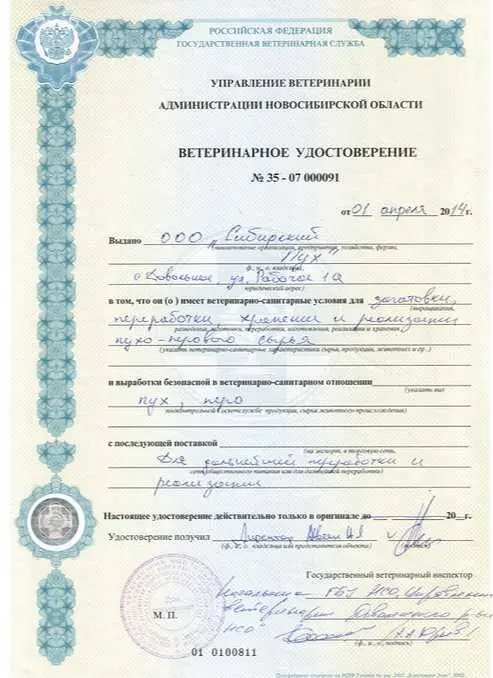 РОССИЙСКАЯ ФЕДЕРАЦИЯ
ГОСУДАРСТВЕННАЯ ВЕТЕРИНАРНАЯ СЛУЖБА
УПРАВЛЕНИЕ ВЕТЕРИНАРИИ
АДМИНИСТРАЦИИ НОВОСИБИРСКОЙ ОБЛАСТИ
ВЕТЕРИНАРНОЕ УДОСТОВЕРЕНИЕ
№ 35 - 07 000091
от 01 апреля 2014 г.
Выдано ООО „Сибирский
наименование организации, предприятия, хозяйства, фермы,
Пух"
ф., и., о. владельца
ул. Рабочая 1а
(юридический адрес)
в том, что он (о ) имеет ветеринарно-санитарные условия для заготовки,
(выращивания,
переработки, хранения и реализации
разведения, заготовки, переработки, изготовления, реализации и хранения
пухо-перового сырья
(указать ветеринарно-санитарные характеристики сырья, продукции, животных и др. )
и выработки безопасной в ветеринарно-санитарном отношении
(указать вид
пух, перо
подконтрольной госветслужбе продукции, сырья животного происхождения)
с последующей поставкой
(на экспорт, в торговую сеть,
Для дальнейшей переработки и
сеть общественного питания или для дальнейшей переработки)
реализации
Настоящее удостоверение действительно только в оригинале до 20 г.
Удостоверение получил Директор и
(ф., и., о. владельца или представителя объекта) (подпись)
Государственный ветеринарный инспектор
ГБУ НСО
ветеринарии р-на
НСО"
(ф., и., о., подпись)
М. П.
01 0100811